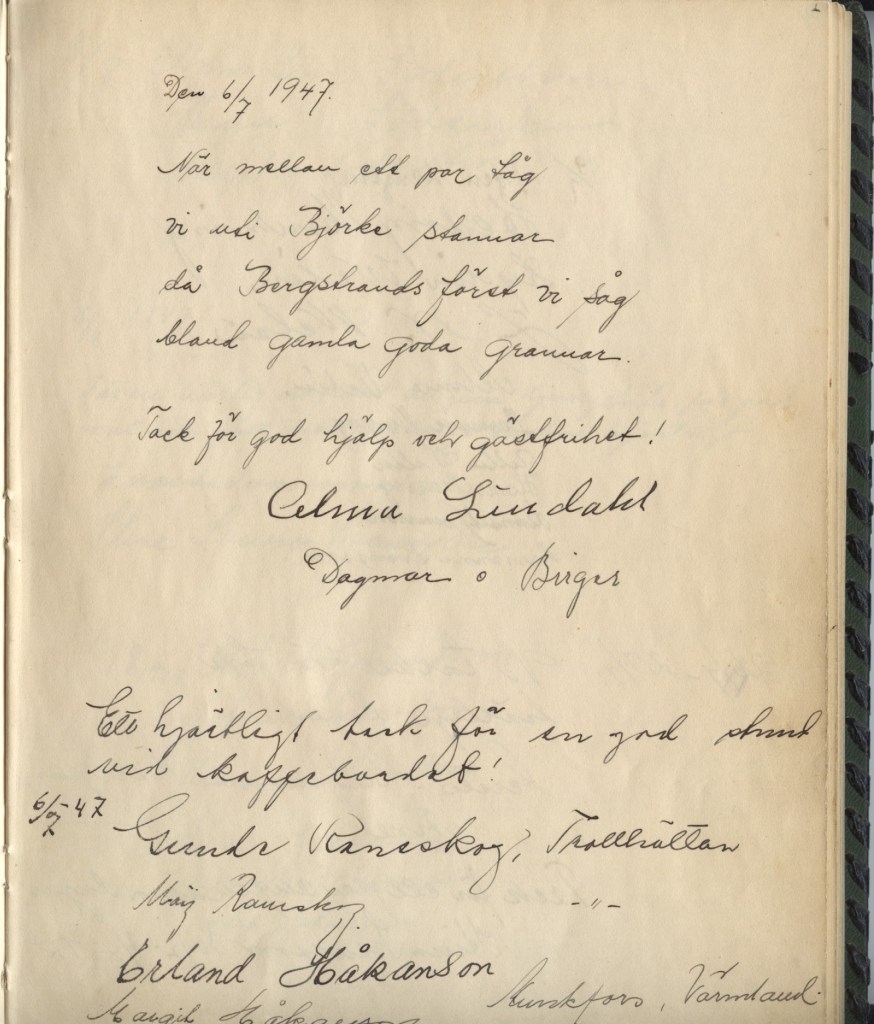 Den 6/7 1947.
När mellan ett par tåg
vi uti Björke stannar
då Bergstrands först vi såg
bland gamla goda grannar.
Tack för god hjälp och gästfrihet!
Lindahl
Dagmar o Birger
Ett hjärtligt tack för en god stund
vid kaffebordet!
6/7 47
Ramsskog, Trollhättan
Maj Ramskog -"-
Erland Håkanson
Munkfors, Värmland.
Margit Håkanson